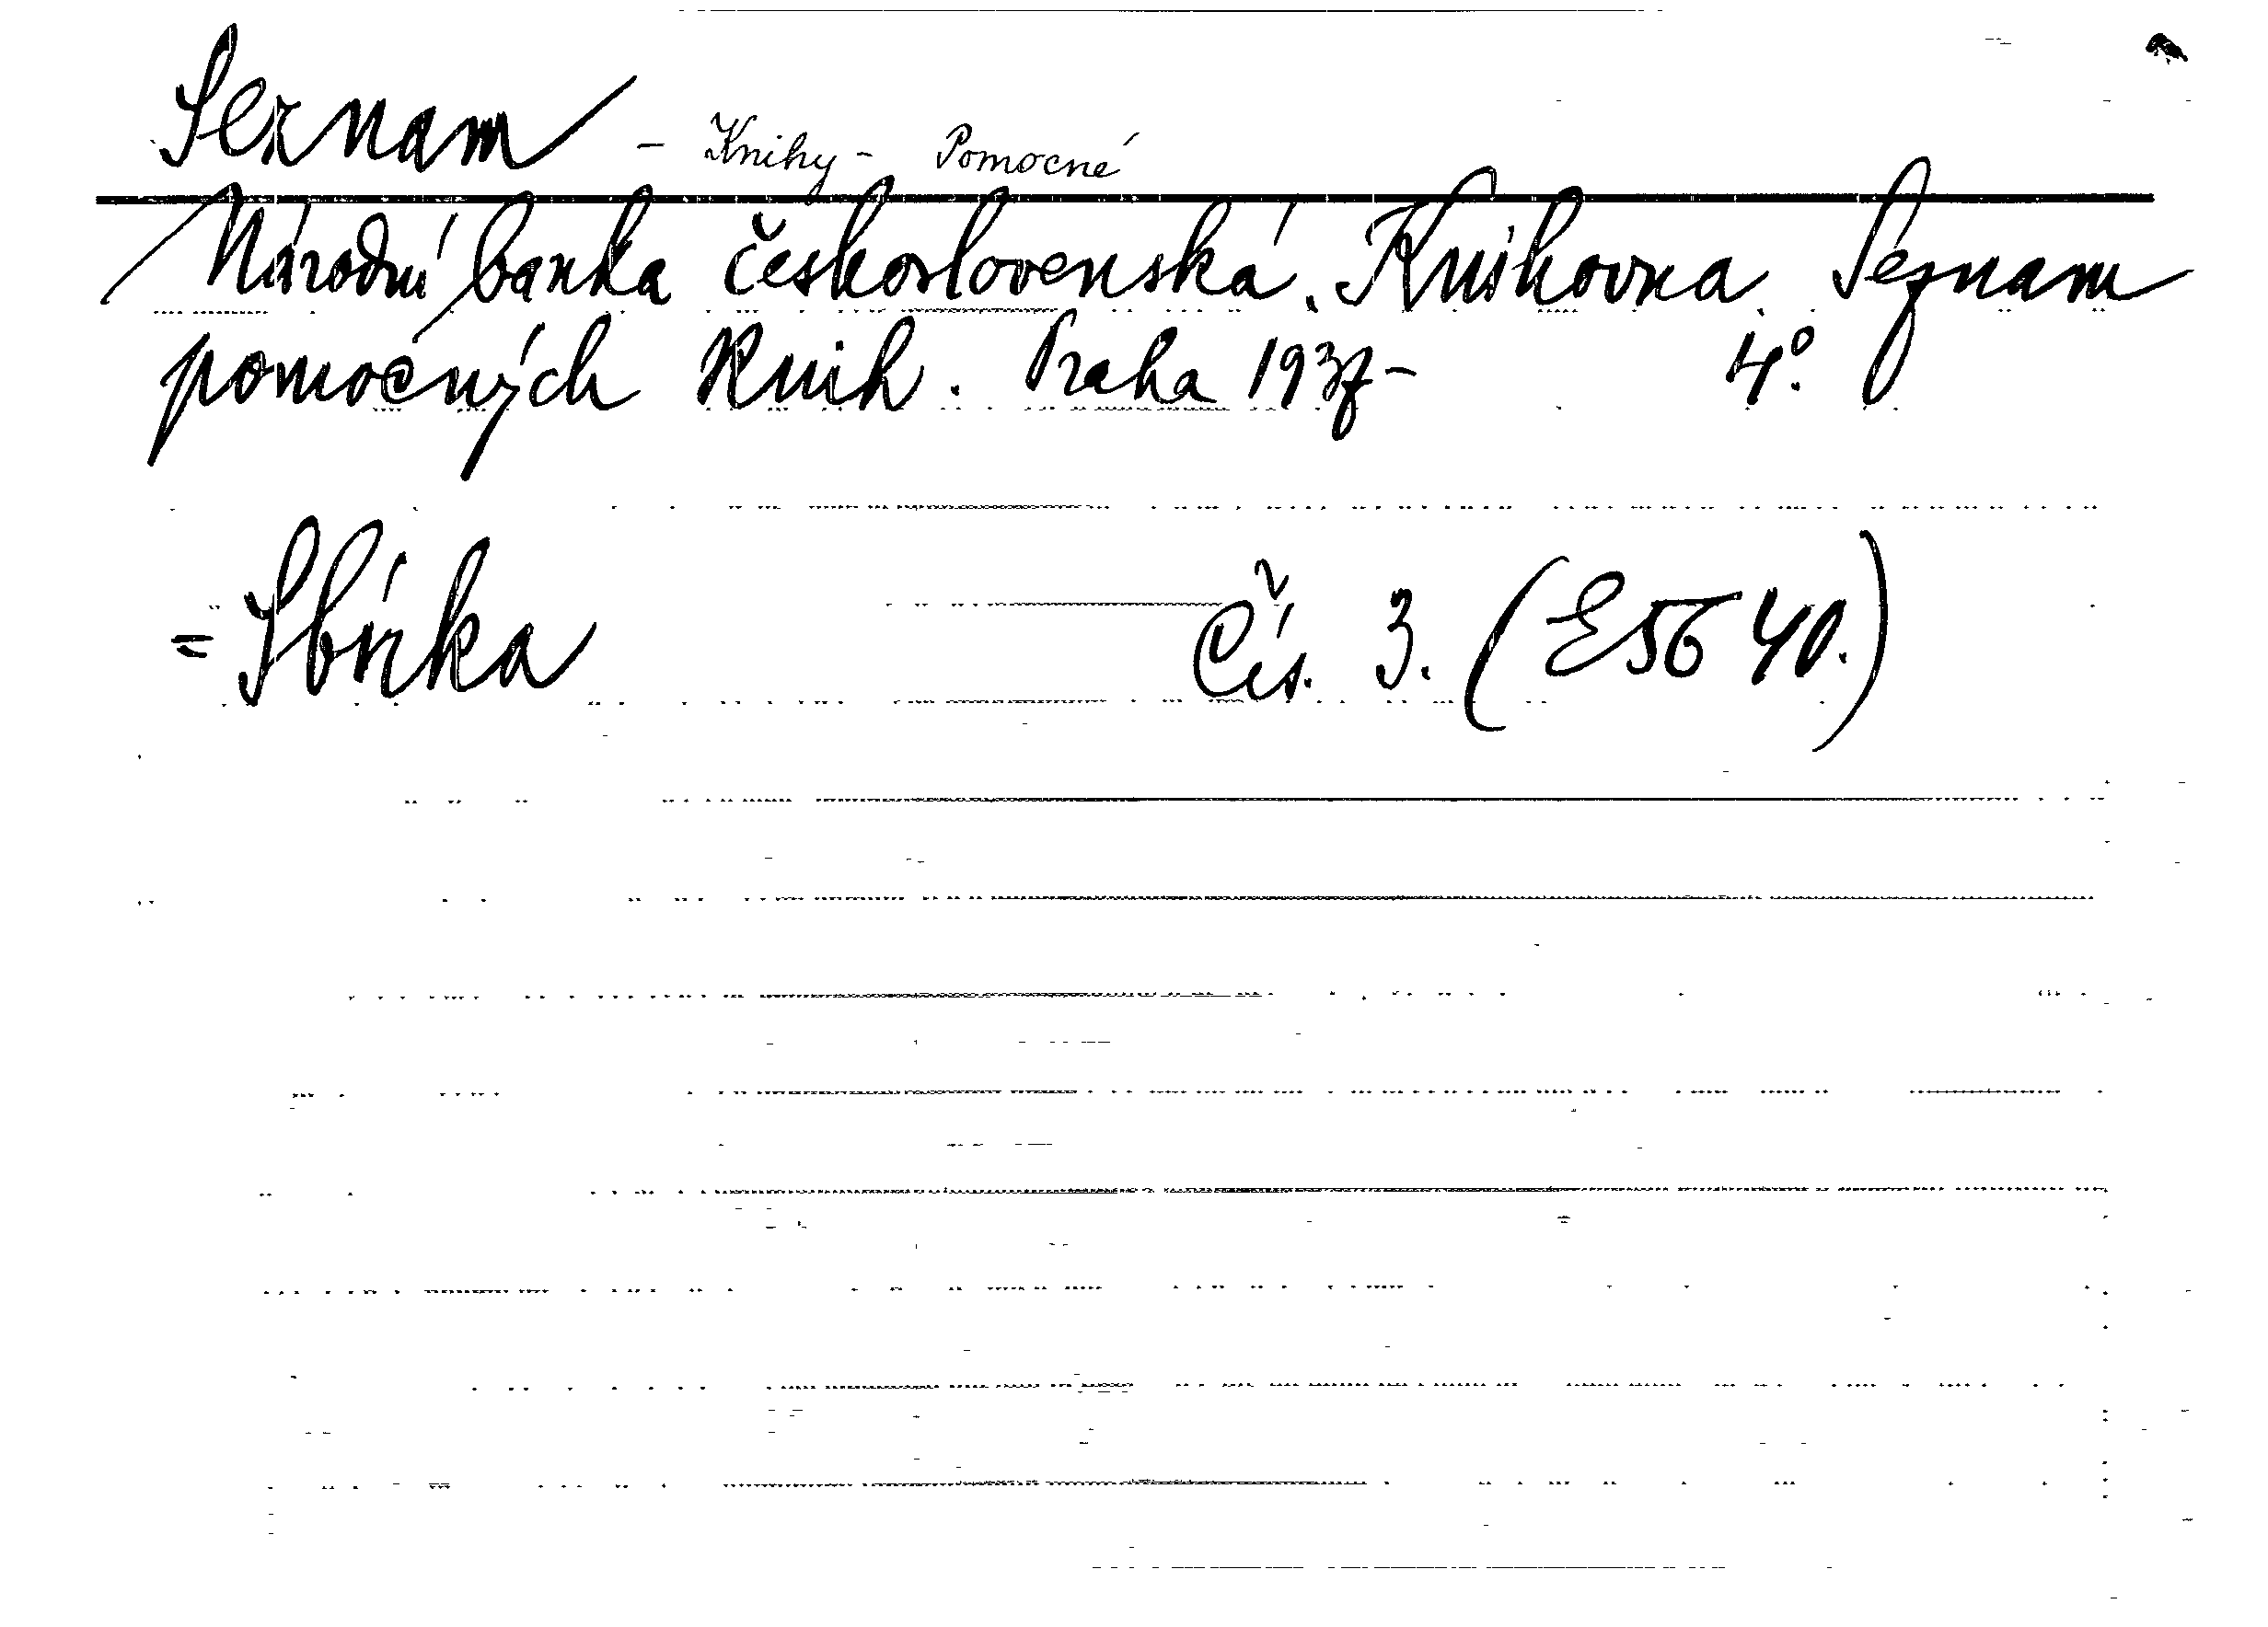 Seznam - Knihy - Pomocné
Národní banka československá. Knihovna. Seznam
pomocných knih. Praha 1937- 4°.
= Sbírka Čís. 3. (E5640.)